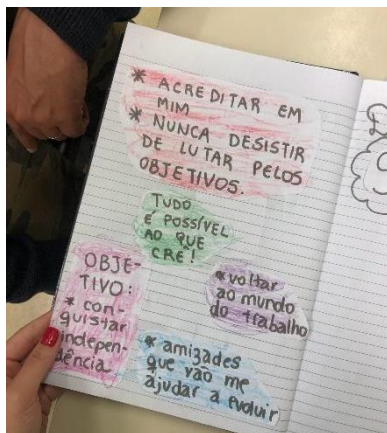 * ACREDITAR EM
MIM
* NUNCA DESISTIR
DE LUTAR PELOS
OBJETIVOS.
TUDO
É POSSÍVEL
AO QUE
CRÊ!
OBJE-
TIVO:
* con-
quistar
indepen-
dência
* voltar
ao mundo
do trabalho
* amizades
que vão me
ajudar a evoluir